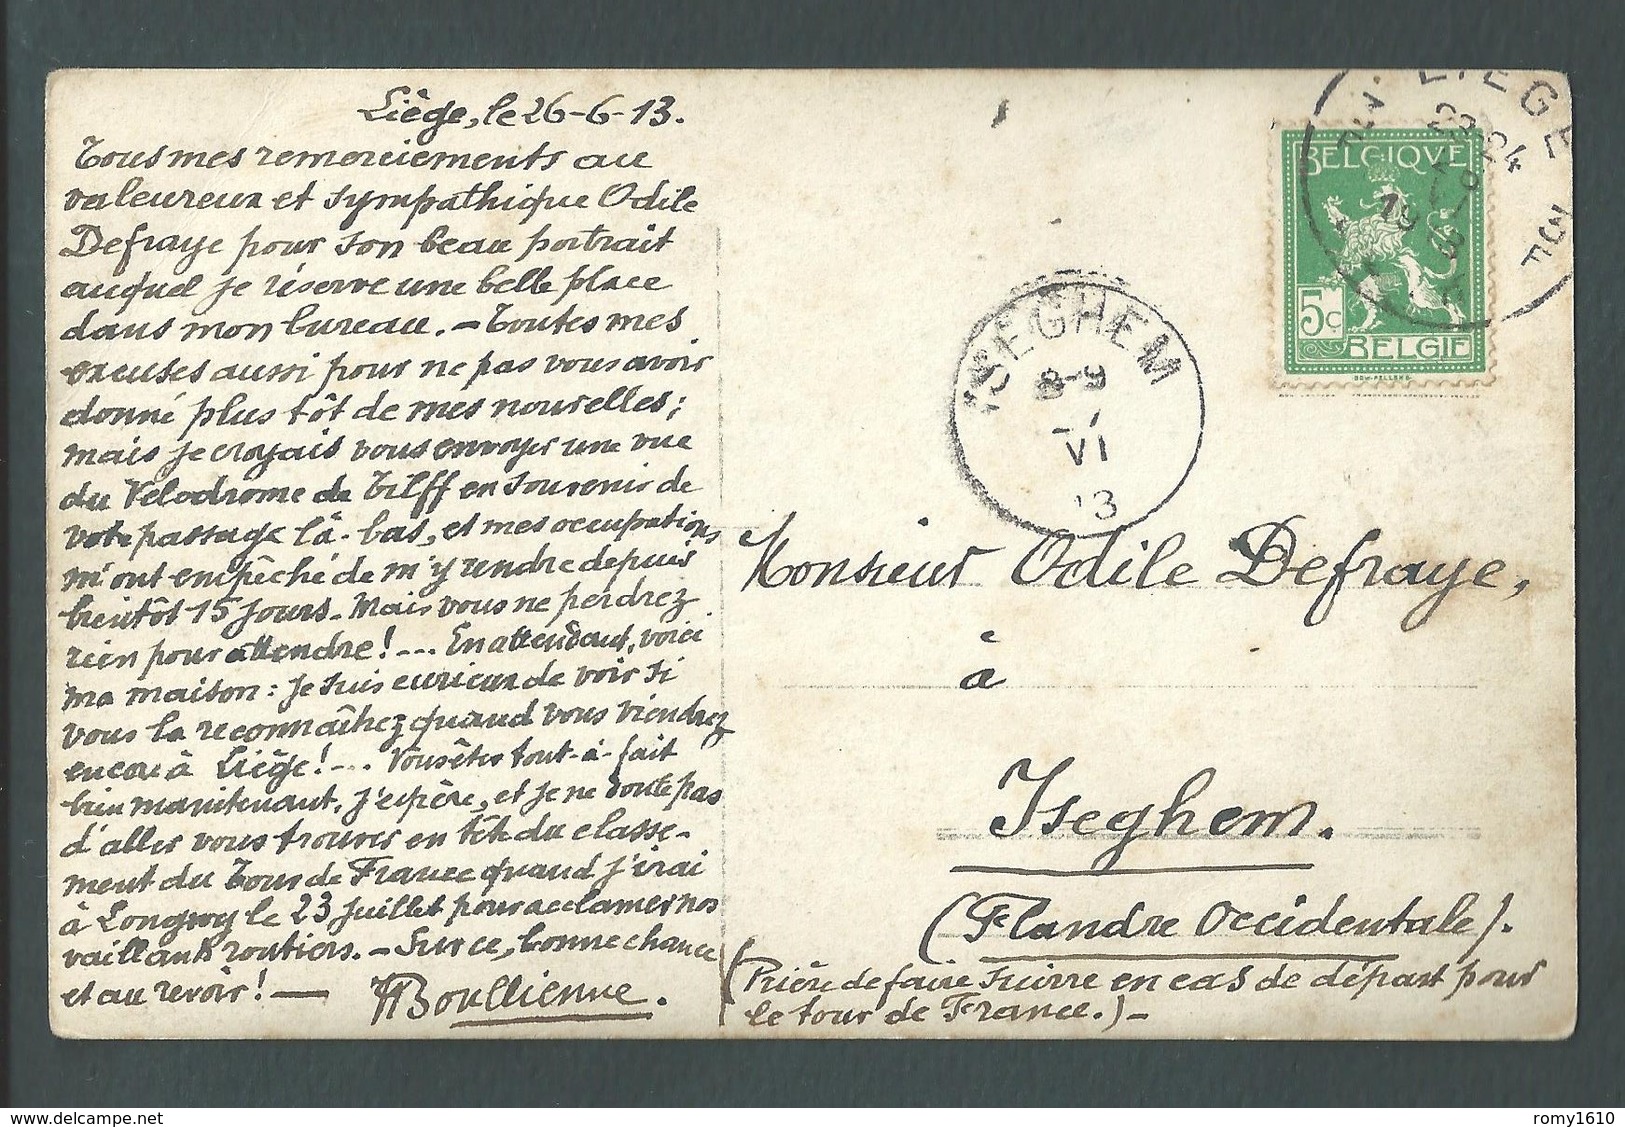 Liège, le 26-6-13.
Tous mes remerciements au
valeureux et sympathique Odile
Defraye pour son beau portrait
auquel je réserve une belle place
dans mon bureau. - Toutes mes
excuses aussi pour ne pas vous avoir
donné plus tôt de mes nouvelles;
mais je croyais vous envoyer une vue
du Vélodrome de Tilff en souvenir de
votre passage là-bas, et mes occupations
m'ont empêché de m'y rendre depuis
bientôt 15 jours. Mais vous ne perdrez
rien pour attendre! ... En attendant, voici
ma maison: je suis curieux de voir si
vous la reconnaîtrez quand vous viendrez
encore à Liège! ... Vous êtes tout-à-fait
bien maintenant, j'espère, et je ne doute pas
d'aller vous trouver en tête du classe-
ment du Tour de France quand j'irai
à Longwy le 23 juillet pour acclamer nos
vaillants routiers. - Sur ce, bonne chance
et au revoir! — Boullienne.
LIEGE
BELGIQUE
5c
BELGIE
ISEGHEM
8-9
VI
13
Monsieur Odile Defraye,
à
Iseghem.
(Flandre Occidentale).
(Prière de faire suivre en cas de départ pour
le tour de France.) -
delcampe.net
romy1610